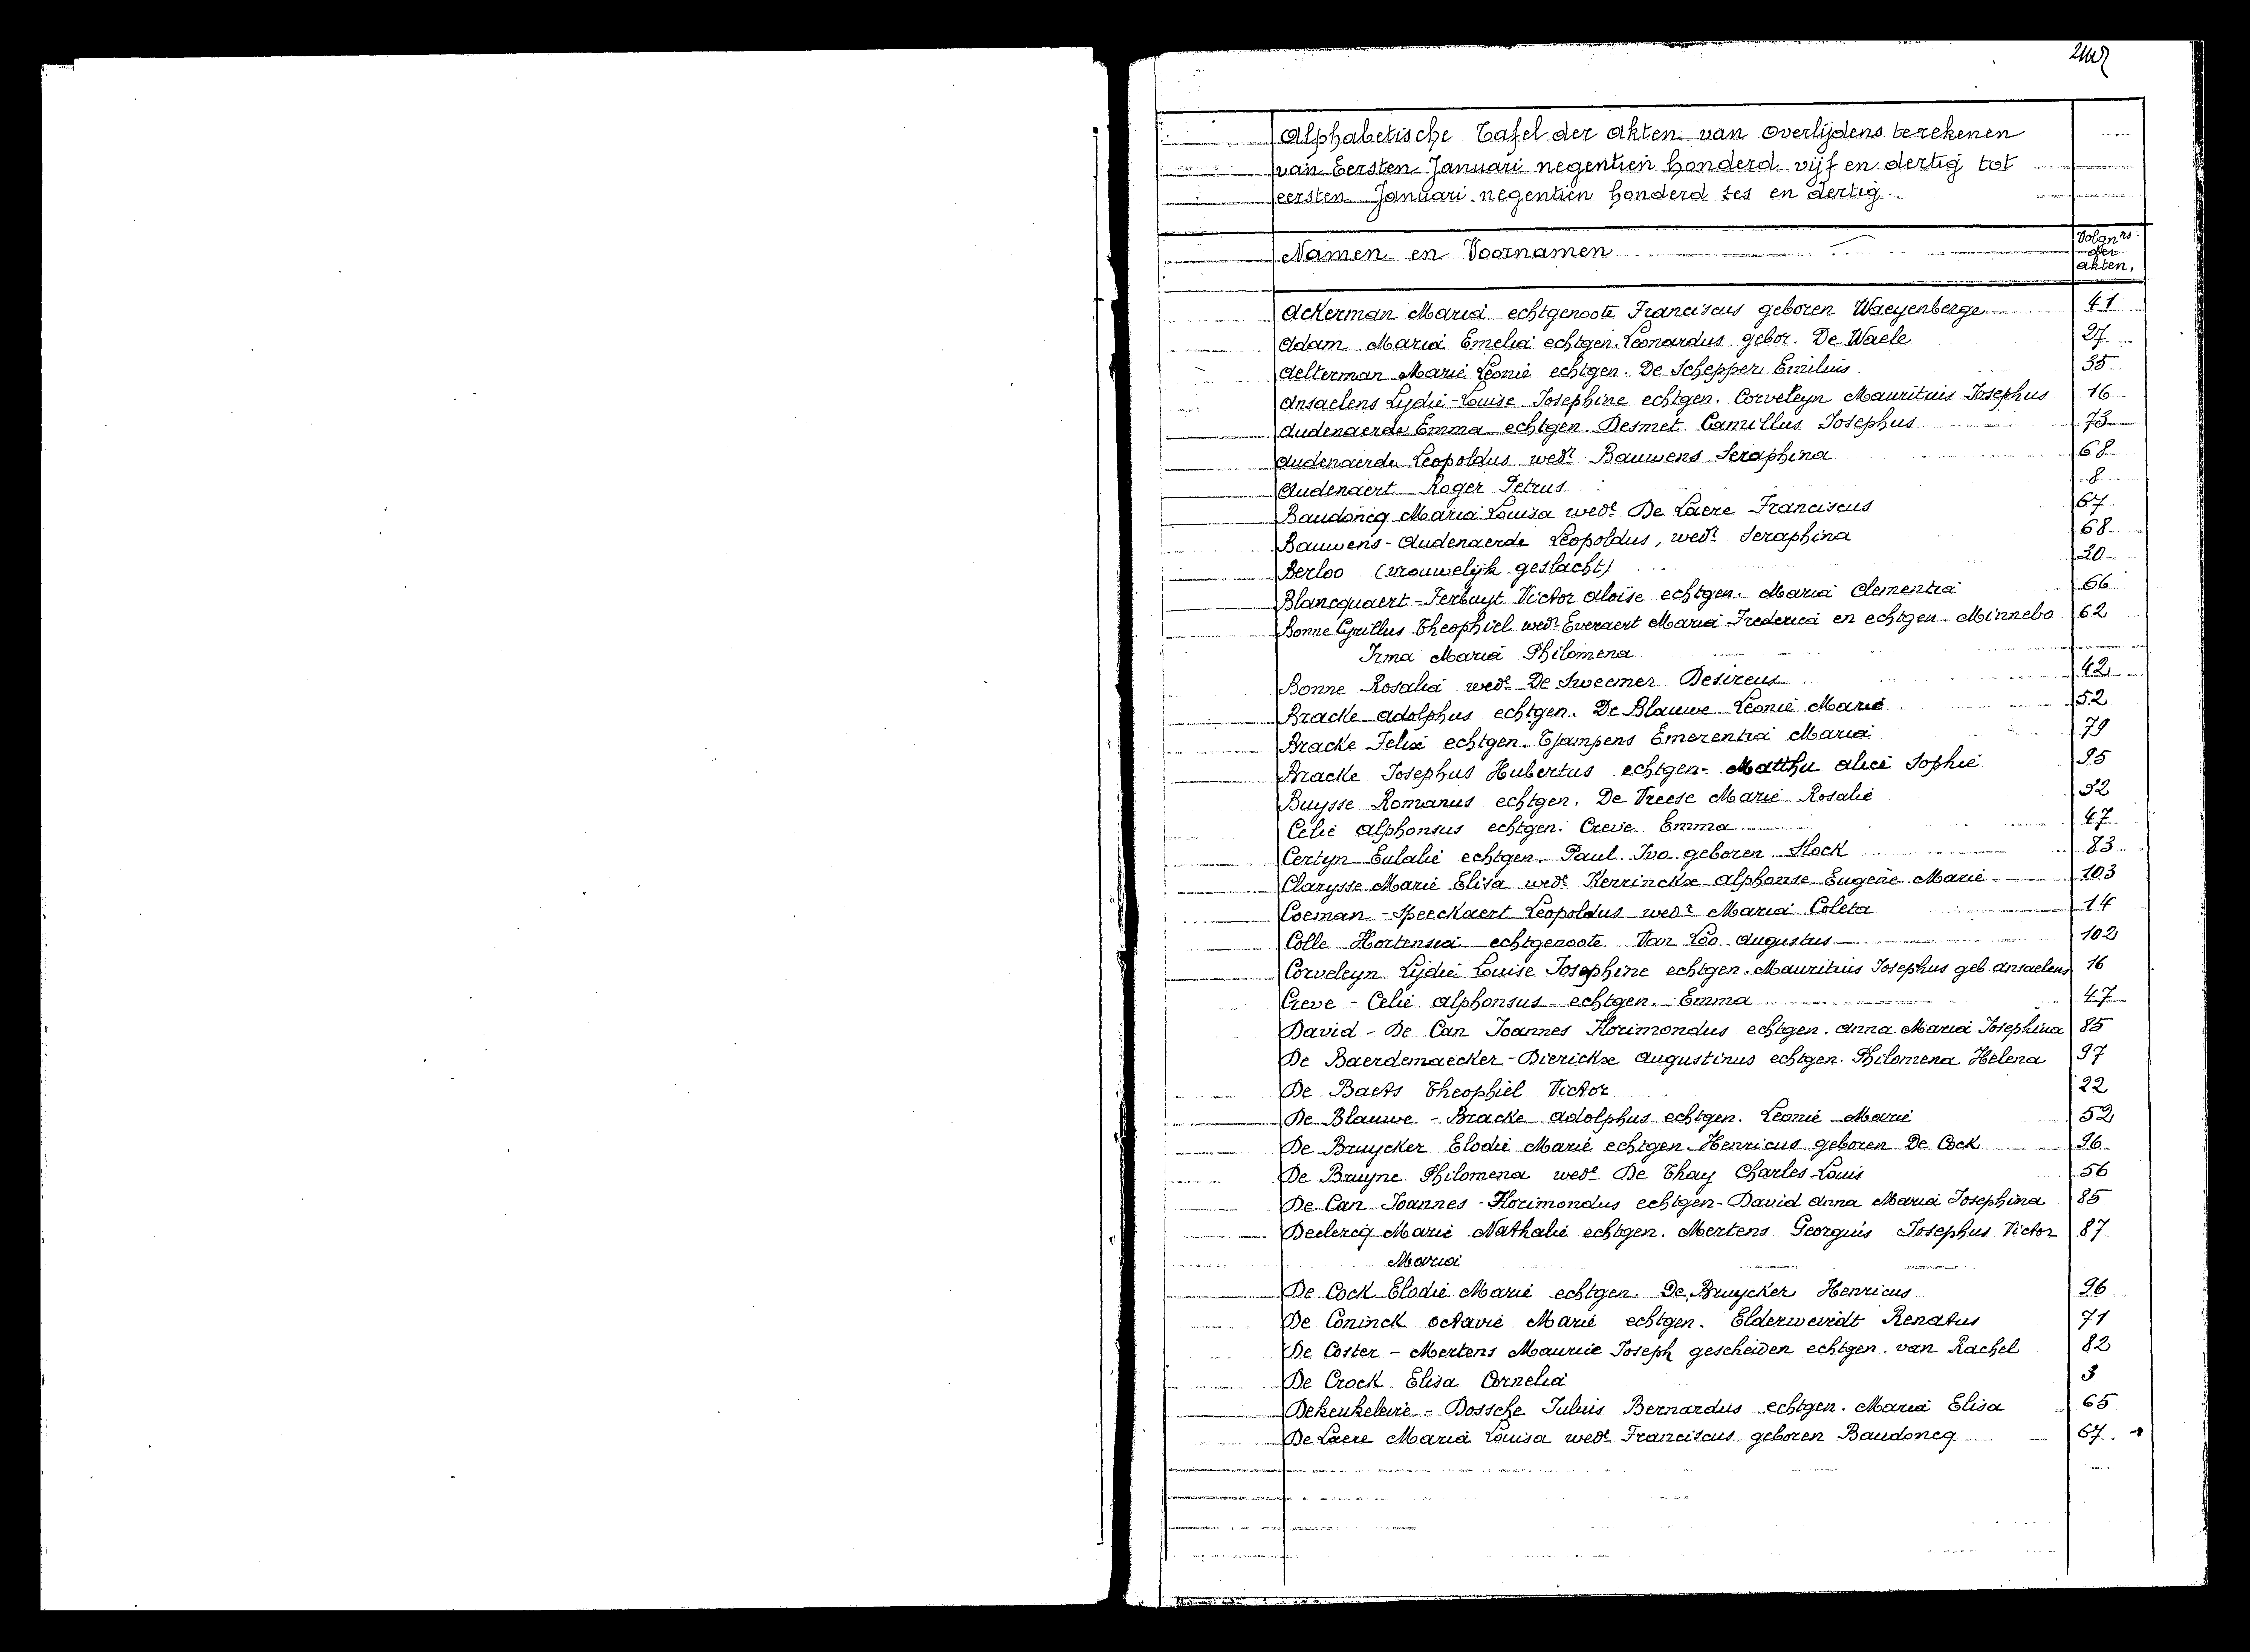 Alphabetische Tafel der akten van overlijdens te rekenen
van Eersten Januari negentien honderd vijf en dertig tot
eersten Januari negentien honderd zes en dertig.
Namen en Voornamen
Volgnrs.
der
akten.
Ackerman Maria echtgenoote Franciscus geboren Waeyenberge 41
Adam Maria Emelia echtgen. Leonardus gebor. De Waele 27
Aelterman Marie Leonie echtgen. De Schepper Emilius 35
Ansaelens Lydie-Louise Josephine echtgen. Corveleyn Mauritius Josephus 16
Audenaerde Emma echtgen. Desmet Camillus Josephus 73
Audenaerde Leopoldus wedr Bauwens Seraphina 68
Audenaert Roger Petrus 8
Baudoncq Maria Louisa wede De Laere Franciscus 67
Bauwens-Audenaerde Leopoldus, wedr Seraphina 68
Berloo (vrouwelijk geslacht) 30
Blancquaert-Ferbuyt Victor Aloise echtgen. Maria Clementia 66
Bonne Cyrillus Theophiel wedr Everaert Maria Frederica en echtgen. Minnebo 62
Irma Maria Philomena
Bonne Rosalia wede De Sweemer Desireus 42
Bracke Adolphus echtgen. De Blauwe Leonie Marie 52
Bracke Felix echtgen. Tjampens Emerentia Maria 79
Bracke Josephus Hubertus echtgen. Matthu Alice Sophie 95
Buysse Romanus echtgen. De Vreese Marie Rosalie 32
Celie Alphonsus echtgen. Creve Emma 47
Certyn Eulalie echtgen. Paul Ivo geboren Stock 83
Clarysse Marie Elisa wede Kerrinckx Alphonse Eugène Marie 103
Coeman-Speeckaert Leopoldus wedr Maria Coleta 14
Colle Hortensia echtgenoote Van Loo Augustus 102
Corveleyn Lydie Louise Josephine echtgen. Mauritius Josephus geb. Ansaelens 16
Creve - Celie Alphonsus echtgen. Emma 47
David - De Can Joannes Florimondus echtgen. Anna Maria Josephina 85
De Baerdemaecker-Dierickx Augustinus echtgen. Philomena Helena 97
De Baets Theophiel Victor 22
De Blauwe - Bracke Adolphus echtgen. Leonie Marie 52
De Bruycker Elodie Marie echtgen. Henricus geboren De Cock 96
De Bruyne Philomena wede De Thay Charles-Louis 56
De Can-Joannes-Florimondus echtgen-David Anna Maria Josephina 85
Declercq Marie Nathalie echtgen. Mertens Georguis Josephus Victor 87
Maria
De Cock Elodie Marie echtgen. De Bruycker Henricus 96
De Coninck Octavie Marie echtgen. Elderweirdt Renatus 71
De Coster - Mertens Maurice Joseph gescheiden echtgen. van Rachel 82
De Crock Elisa Cornelia 3
Dekeukeleire - Dossche Julius Bernardus echtgen. Maria Elisa 65
De Laere Maria Louisa wede Franciscus geboren Baudoncq 67